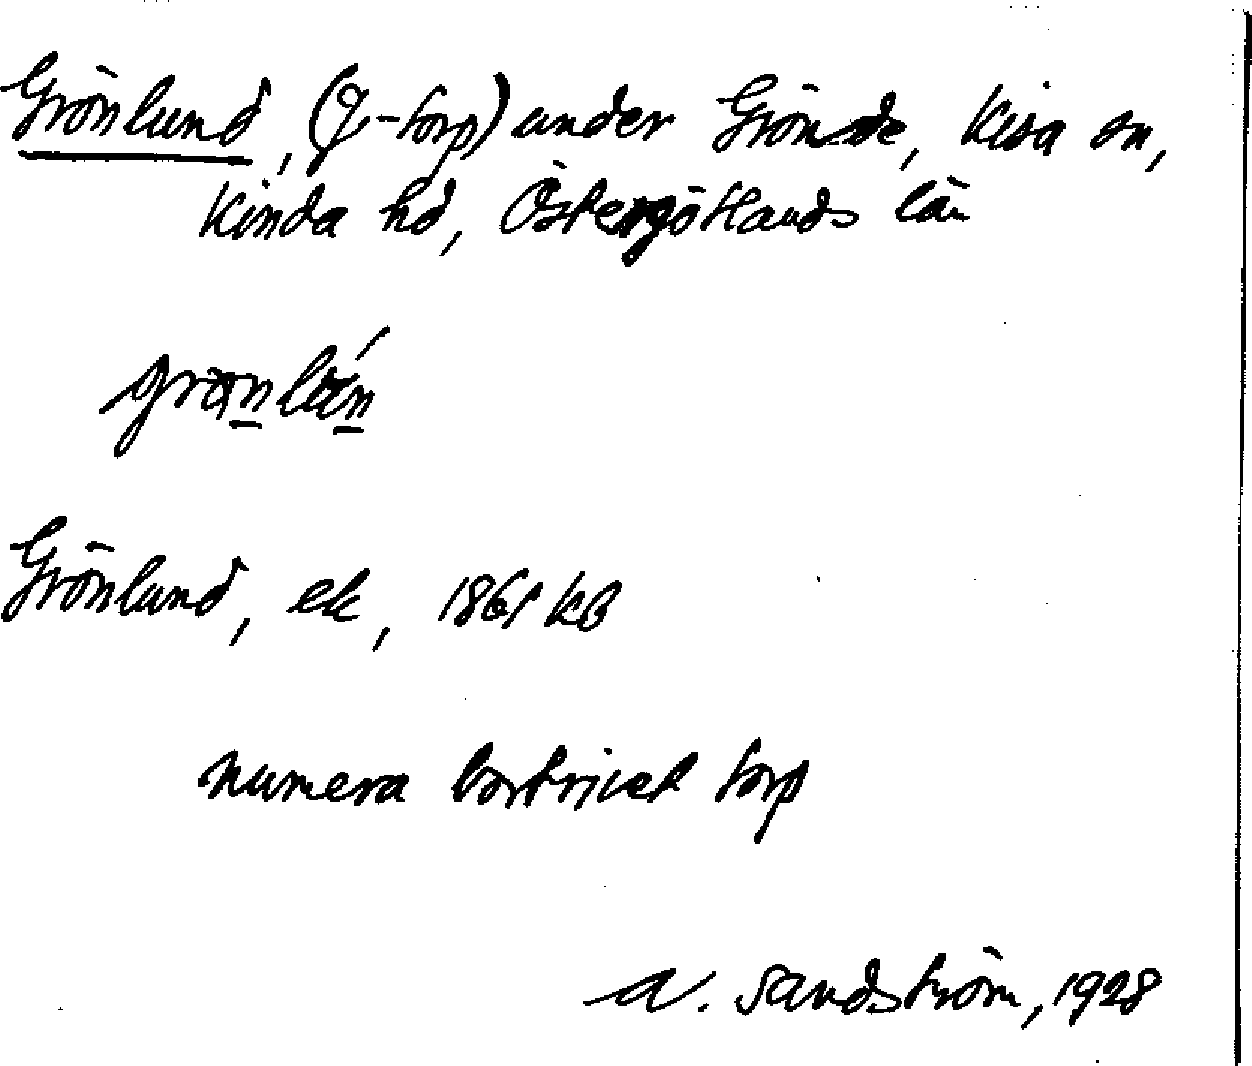 Grönlund, (f.-torp) under Grönede, Kisa sn,
Kinda hd, Östergötlands län
Grönlund, ek, 1861 kB
numera bortrivet torp
A. Sandström, 1928